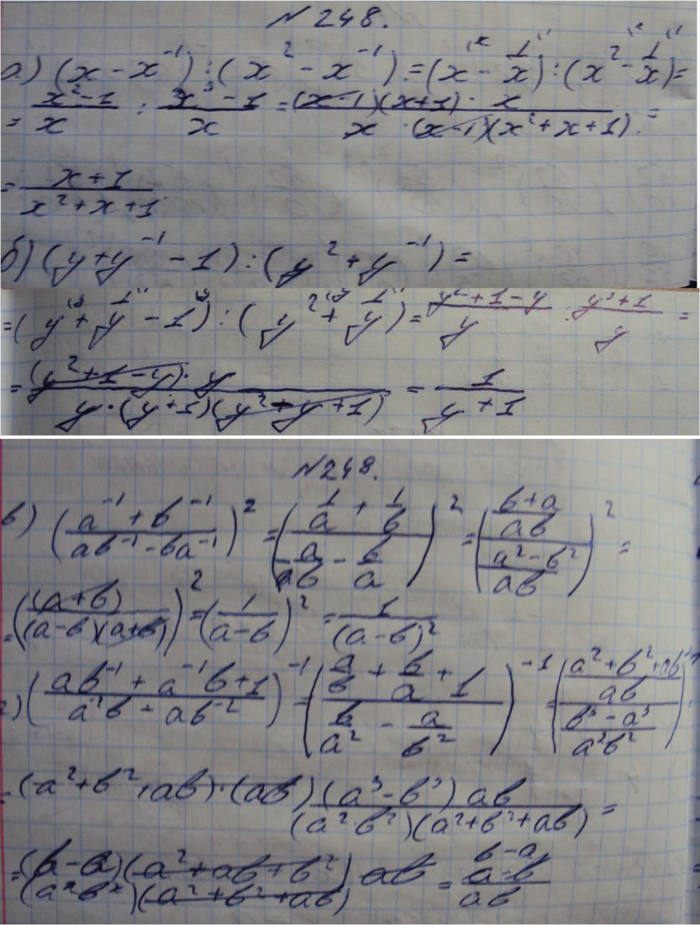 № 248.
а) (x - x^-1) : (x^2 - x^-1) = (x - 1/x) : (x^2 - 1/x) =
= (x^2-1)/x : (x^3-1)/x = ((x-1)(x+1) · x)/(x · (x-1)(x^2+x+1)) =
= (x+1)/(x^2+x+1)
б) (y + y^-1 - 1) : (y^2 + y^-1) =
= (y + 1/y - 1) : (y^2 + 1/y) = (y^2+1-y)/y : (y^3+1)/y =
= ((y^2+1-y) · y)/(y · (y+1)(y^2+y+1)) = 1/(y+1)
№ 248.
в) ((a^-1 + b^-1)/(ab^-1 - ba^-1))^2 = ((1/a + 1/b)/(a/b - b/a))^2 = (((b+a)/ab)/((a^2-b^2)/ab))^2 =
= ((a+b)/((a-b)(a+b)))^2 = (1/(a-b))^2 = 1/(a-b)^2
г) ((ab^-1 + a^-1b + 1)/(a^-2b - ab^-2))^-1 = ((a/b + b/a + 1)/(b/a^2 - a/b^2))^-1 = (((a^2+b^2+ab)/ab)/((b^3-a^3)/(a^2b^2)))^-1
= (a^2+b^2+ab) · (ab) ((a^3-b^3) ab)/((a^2b^2)(a^2+b^2+ab)) =
= ((b-a)(a^2+ab+b^2) ab)/((a^2b^2)(a^2+b^2+ab)) = b-a (a-b)/ab